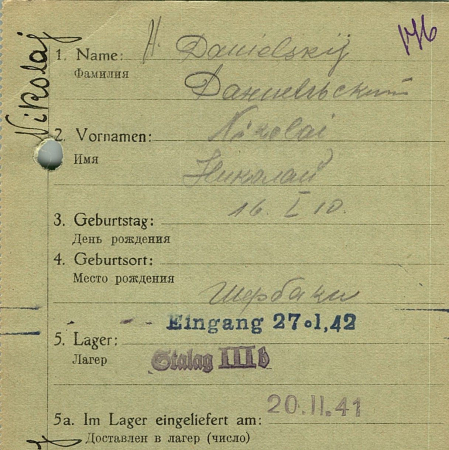 Nikolaj
1. Name: Danielskij
Фамилия
Даниельский
2. Vornamen: Nikolai
Имя
Николай
16. I 10.
3. Geburtstag:
День рождения
4. Geburtsort:
Место рождения
Щербаки
Eingang 27.1,42
5. Lager:
Лагер
Stalag IIIb
20.11.41
5a. Im Lager eingeliefert am:
Доставлен в лагер (число)